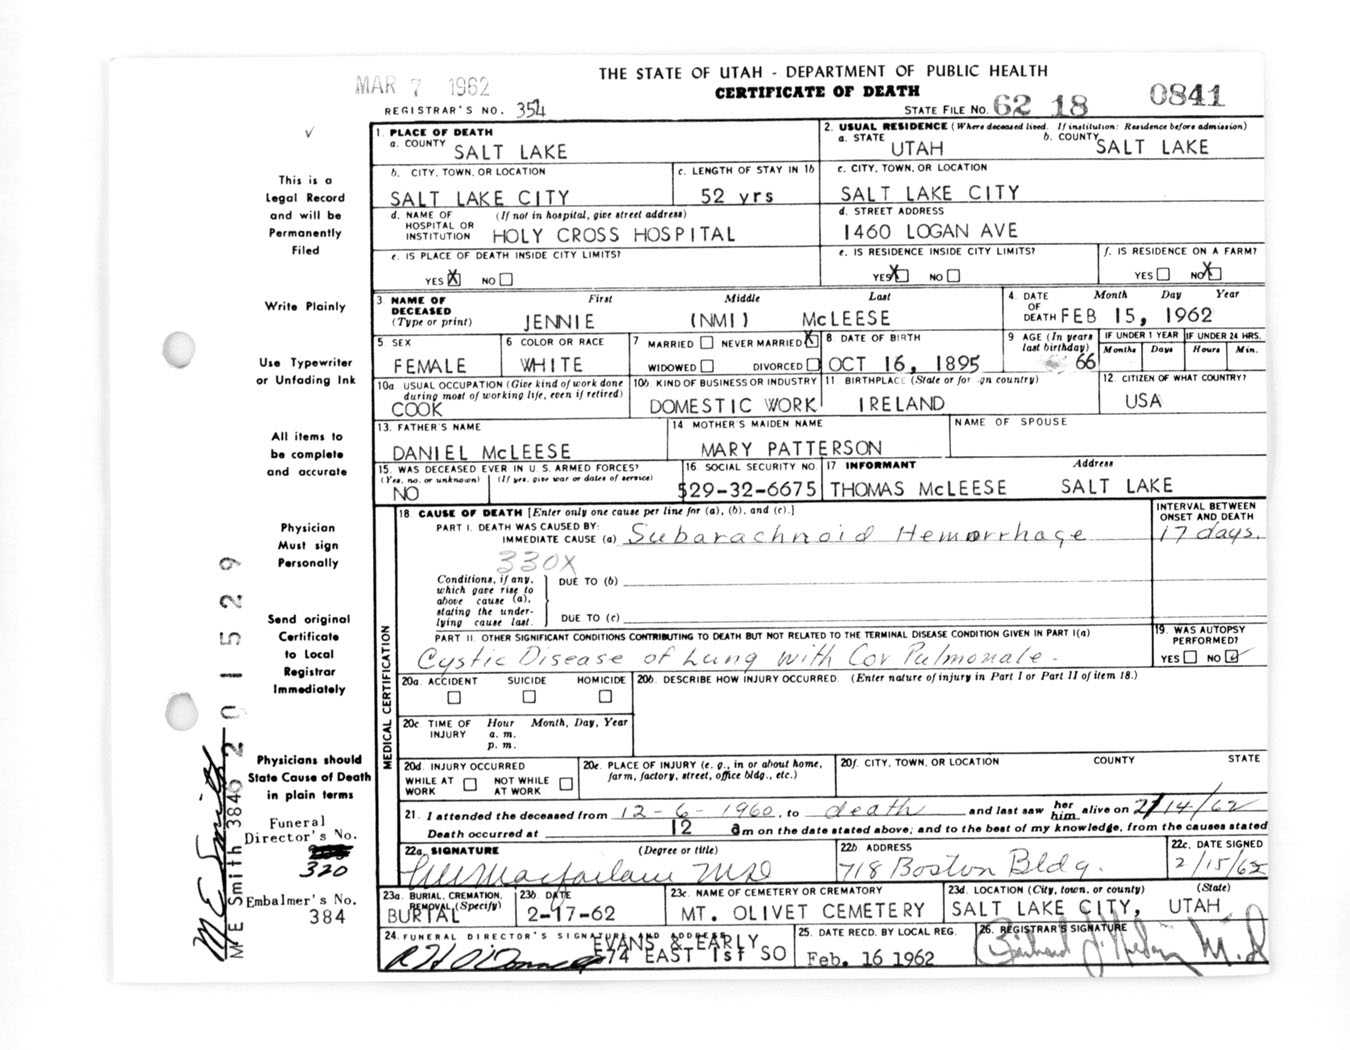 THE STATE OF UTAH - DEPARTMENT OF PUBLIC HEALTH
MAR 7 1962
CERTIFICATE OF DEATH
REGISTRAR'S NO. 354
STATE FILE NO. 62 18 0841
This is a
Legal Record
and will be
Permanently
Filed
Write Plainly
Use Typewriter
or Unfading Ink
All items to
be complete
and accurate
Physician
Must sign
Personally
Send original
Certificate
to Local
Registrar
Immediately
Physicians should
State Cause of Death
in plain terms
Funeral
Director's No.
320
Embalmer's No.
384
M E Smith
M E Smith 3846
201529
1. PLACE OF DEATH
a. COUNTY SALT LAKE
2. USUAL RESIDENCE (Where deceased lived. If institution: Residence before admission)
a. STATE UTAH
b. COUNTY SALT LAKE
b. CITY, TOWN, OR LOCATION
SALT LAKE CITY
c. LENGTH OF STAY IN 1b
52 yrs
c. CITY, TOWN, OR LOCATION
SALT LAKE CITY
d. NAME OF HOSPITAL OR INSTITUTION (If not in hospital, give street address)
HOLY CROSS HOSPITAL
d. STREET ADDRESS
1460 LOGAN AVE
e. IS PLACE OF DEATH INSIDE CITY LIMITS?
YES X NO
e. IS RESIDENCE INSIDE CITY LIMITS?
YES X NO
f. IS RESIDENCE ON A FARM?
YES NO X
3 NAME OF DECEASED (Type or print)
First Middle Last
JENNIE (NMI) McLEESE
4. DATE OF DEATH Month Day Year
FEB 15, 1962
5 SEX
FEMALE
6 COLOR OR RACE
WHITE
7 MARRIED NEVER MARRIED X
WIDOWED DIVORCED
8 DATE OF BIRTH
OCT 16, 1895
9 AGE (In years last birthday)
66
IF UNDER 1 YEAR IF UNDER 24 HRS.
Months Days Hours Min.
10a USUAL OCCUPATION (Give kind of work done during most of working life, even if retired)
COOK
10b. KIND OF BUSINESS OR INDUSTRY
DOMESTIC WORK
11. BIRTHPLACE (State or for gn country)
IRELAND
12. CITIZEN OF WHAT COUNTRY?
USA
13. FATHER'S NAME
DANIEL McLEESE
14 MOTHER'S MAIDEN NAME
MARY PATTERSON
NAME OF SPOUSE
15. WAS DECEASED EVER IN U. S. ARMED FORCES?
(Yes, no. or unknown) (If yes, give war or dates of service)
NO
16 SOCIAL SECURITY NO
529-32-6675
17 INFORMANT Address
THOMAS McLEESE SALT LAKE
MEDICAL CERTIFICATION
18 CAUSE OF DEATH [Enter only one cause per line for (a), (b), and (c).]
INTERVAL BETWEEN ONSET AND DEATH
PART I. DEATH WAS CAUSED BY:
IMMEDIATE CAUSE (a) Subarachnoid Hemorrhage 17 days.
330X
Conditions, if any, which gave rise to above cause (a), stating the underlying cause last.
DUE TO (b)
DUE TO (c)
PART II. OTHER SIGNIFICANT CONDITIONS CONTRIBUTING TO DEATH BUT NOT RELATED TO THE TERMINAL DISEASE CONDITION GIVEN IN PART I(a)
Cystic Disease of Lung with Cor Pulmonale.
19. WAS AUTOPSY PERFORMED?
YES NO ✓
20a. ACCIDENT SUICIDE HOMICIDE
20b. DESCRIBE HOW INJURY OCCURRED. (Enter nature of injury in Part I or Part II of item 18.)
20c TIME OF INJURY Hour Month, Day, Year
a. m.
p. m.
20d. INJURY OCCURRED
WHILE AT WORK NOT WHILE AT WORK
20e. PLACE OF INJURY (e. g., in or about home, farm, factory, street, office bldg., etc.)
20f. CITY, TOWN, OR LOCATION COUNTY STATE
21. I attended the deceased from 12-6-1960, to death and last saw her him alive on 2/14/62
Death occurred at 12 am on the date stated above; and to the best of my knowledge, from the causes stated
22a. SIGNATURE (Degree or title)
Macfarlane MD
22b ADDRESS
718 Boston Bldg.
22c. DATE SIGNED
2/15/62
23a. BURIAL, CREMATION, REMOVAL (Specify)
BURIAL
23b DATE
2-17-62
23c. NAME OF CEMETERY OR CREMATORY
MT. OLIVET CEMETERY
23d. LOCATION (City, town, or county) (State)
SALT LAKE CITY, UTAH
24. FUNERAL DIRECTOR'S SIGNATURE AND ADDRESS
EVANS & EARLY
574 EAST 1st SO
25. DATE RECD. BY LOCAL REG.
Feb. 16 1962
26. REGISTRAR'S SIGNATURE
M.D